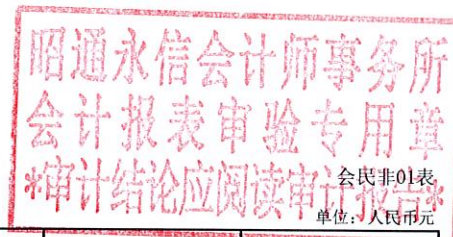 昭通永信会计师事务所
会计报表审验专用章
*审计结论应阅读审计报告*
会民非01表
单位：人民币元